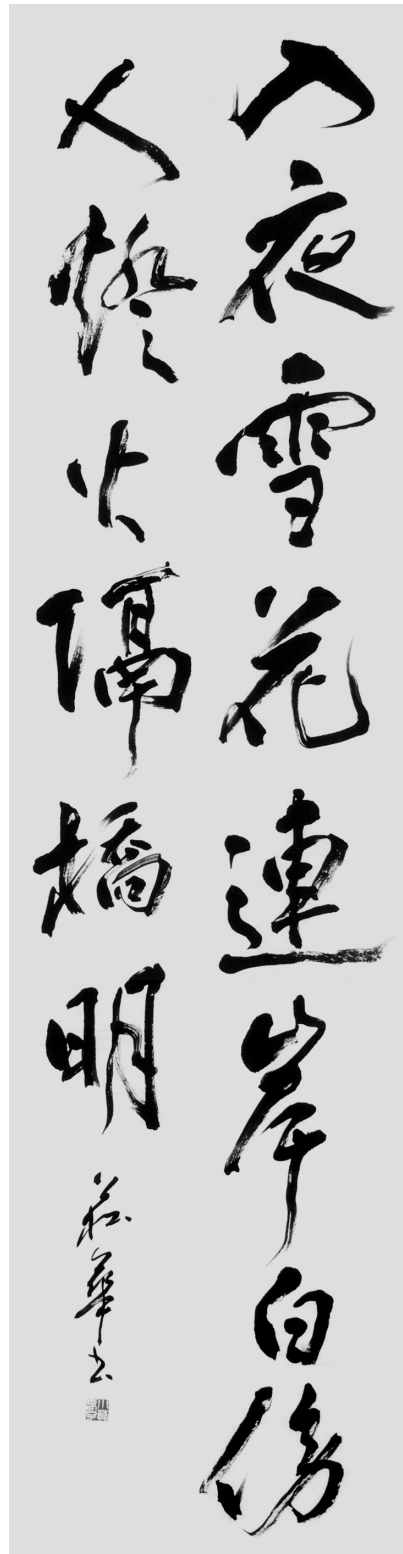 入夜雪花連岸白傍
人燈火隔橋明
華書